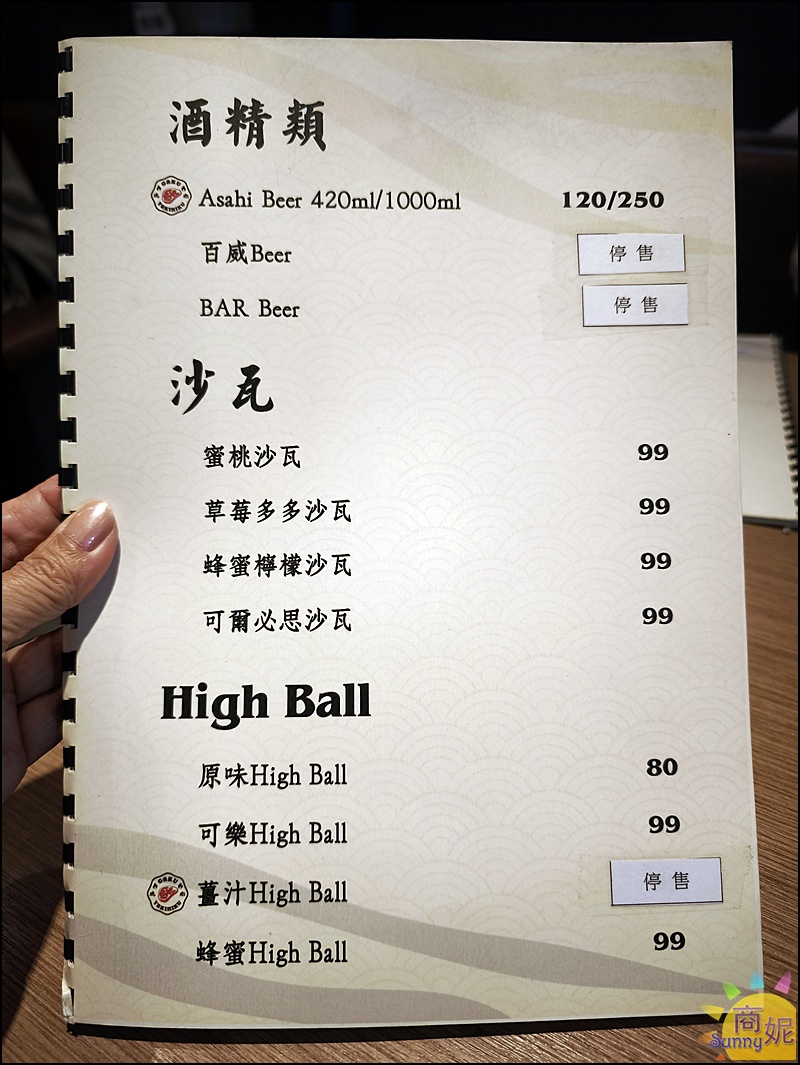 酒精類
Asahi Beer 420ml/1000ml 120/250
百威Beer 停售
BAR Beer 停售
沙瓦
蜜桃沙瓦 99
草莓多多沙瓦 99
蜂蜜檸檬沙瓦 99
可爾必思沙瓦 99
High Ball
原味High Ball 80
可樂High Ball 99
薑汁High Ball 停售
蜂蜜High Ball 99
商妮
Sunny